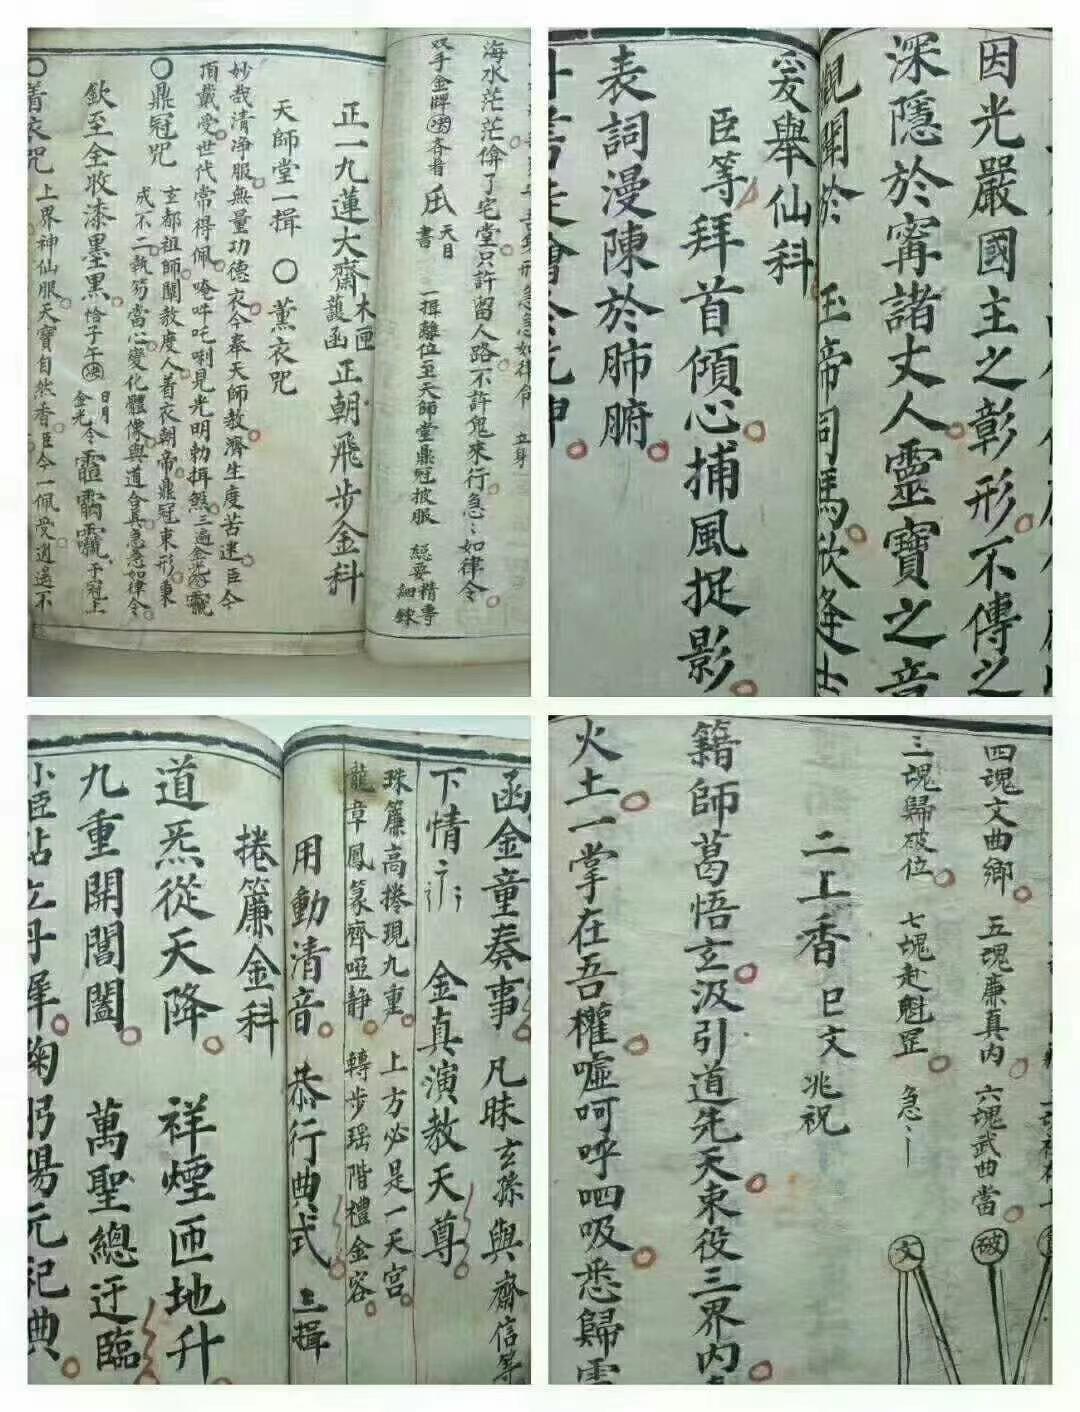 海水茫茫倂了宅堂只許留人路不許鬼來行急〻如律令
一揖離位至天師堂鼎冠披服
總要精專細錄
正一九蓮大齋
木匣
護函
正朝飛步金科
天師堂一揖 〇薰衣咒
妙哉清淨服無量功德衣今奉天師教濟生度苦逮臣今
頂戴受世代常得佩唵吽吒唎見光明勅揖煞三遍金光
〇鼎冠咒
玄都祖師闡教度人着衣朝帝鼎冠束形秉
戎不二執笏當心變化體像與道合真急急如律令
欽至全收漆墨黑
〇着衣咒
上界神仙服天寶自然香臣今一佩受逍遙不
因光嚴國主之彰形不傳之
深隱於甯諸丈人靈寶之音
觀闌於
玉帝詞馬欣逢
爰舉仙科
臣等拜首傾心捕風捉影
表詞漫陳於肺腑
函金童奏事 凡昧玄孫與齋信等
下情 金真演教天尊
珠簾高捲現九重 上方必是一天宮
龍章鳳篆齊啞静 轉步瑶階禮金容
用動清音 恭行典式 三揖
捲簾金科
道炁從天降 祥煙匝地升
九重開閶闔 萬聖總迂臨
小臣站立丹墀 鞠躬陽元祀典
四魂文曲鄉 五魂廉真内 六魂武曲當
三魂歸破位 七魂赴魁罡 急
破
文
二上香 巳文兆祝
籍師葛悟玄汲引道先天束役三界内
火土一掌在吾權噓呵呼呬吸悉歸